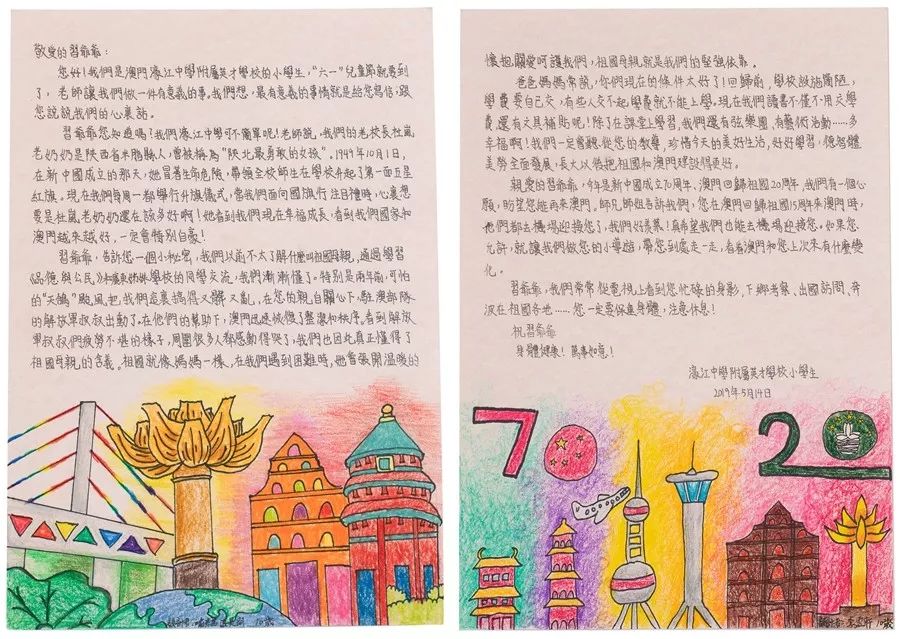 敬愛的習爺爺：
您好！我們是澳門濠江中學附屬英才學校的小學生，“六一”兒童節就要到
了，老師讓我們做一件有意義的事。我們想，最有意義的事情就是給您寫信，跟
您說說我們的心裏話。
習爺爺您知道嗎？我們濠江中學可不簡單呢！老師說，我們的老校長杜嵐
老奶奶是陝西省米脂縣人，曾被稱為“陝北最勇敢的女孩”。1949年10月1日，
在新中國成立的那天，她冒着生命危險，帶領全校師生在學校升起了第一面五星
紅旗。現在我們每周一都舉行升旗儀式，當我們面向國旗行注目禮時，心裏想
要是杜嵐老奶奶還在該多好啊！她看到我們現在幸福成長，看到我們國家和
澳門越來越好，一定會特別自豪！
習爺爺，告訴您一個小秘密，我們以前不太了解什麼叫祖國母親，通過學習
《品德與公民》和廣東姊妹學校的同學交流，我們漸漸懂了。特別是兩年前，可怕
的“天鴿”颱風把我們家裏搞得又髒又亂，在您的親自關心下，駐澳部隊
的解放軍叔叔出動了。在他們的幫助下，澳門迅速恢復了整潔和秩序。看到解放
軍叔叔們疲勞不堪的樣子，周圍很多人都感動得哭了，我們也因此真正懂得了
祖國母親的含義。祖國就像媽媽一樣，在我們遇到困難時，她會張開溫暖的
10歲
懷抱關愛呵護我們，祖國母親就是我們的堅強依靠。
爸爸媽媽常說，你們現在的條件太好了！回歸前，學校設施簡陋，
學費要自己交，有些人交不起學費就不能上學。現在我們讀書不僅不用交學
費，還有文具補貼呢！除了在課堂上學習，我們還有弦樂團，有藝術活動……多
幸福啊！我們一定會聽從您的教導，珍惜今天的美好生活，好好學習，德智體
美勞全面發展，長大以後把祖國和澳門建設得更好。
親愛的習爺爺，今年是新中國成立70周年、澳門回歸祖國20周年，我們有一個心
願，盼望您能再來澳門。師兄師姐告訴我們，您在澳門回歸祖國15周年來澳門時，
他們都去機場迎接您了，我們好羨慕！真希望我們也能去機場迎接您。如果您
允許，就讓我們做您的小導遊，帶您到處走一走，看看澳門和您上次來有什麼變
化。
習爺爺，我們常常從電視上看到您忙碌的身影，下鄉考察、出國訪問、奔
波在祖國各地……您一定要保重身體，注意休息！
祝習爺爺
身體健康！萬事如意！
濠江中學附屬英才學校小學生
2019年5月14日
70
20
10歲